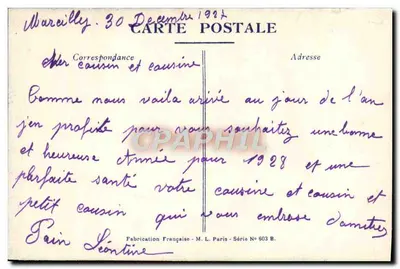 Marcilly. 30 Decembre 1927
CARTE POSTALE
Correspondance
Adresse
Mes cousin et cousine
Comme nous voila arivé au jour de l'an
jen profite pour vous souhaitez une bonne
et heureuse Année pour 1928 et une
parfaite santé votre cousine et cousin et
petit cousin qui vous embrase d'amitiez
Pain Léontine
Fabrication Française - M. L. Paris - Série No 603 B.
CPAPHIL